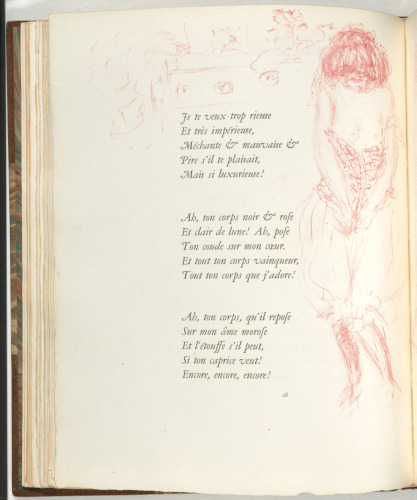 Je te veux trop rieuse
Et très impérieuse,
Méchante & mauvaise &
Pire s'il te plaisait,
Mais si luxurieuse!
Ah, ton corps noir & rose
Et clair de lune! Ah, pose
Ton coude sur mon cœur.
Et tout ton corps vainqueur,
Tout ton corps que j'adore!
Ah, ton corps, qu'il repose
Sur mon âme morose
Et l'étouffe s'il peut,
Si ton caprice veut!
Encore, encore, encore!
28